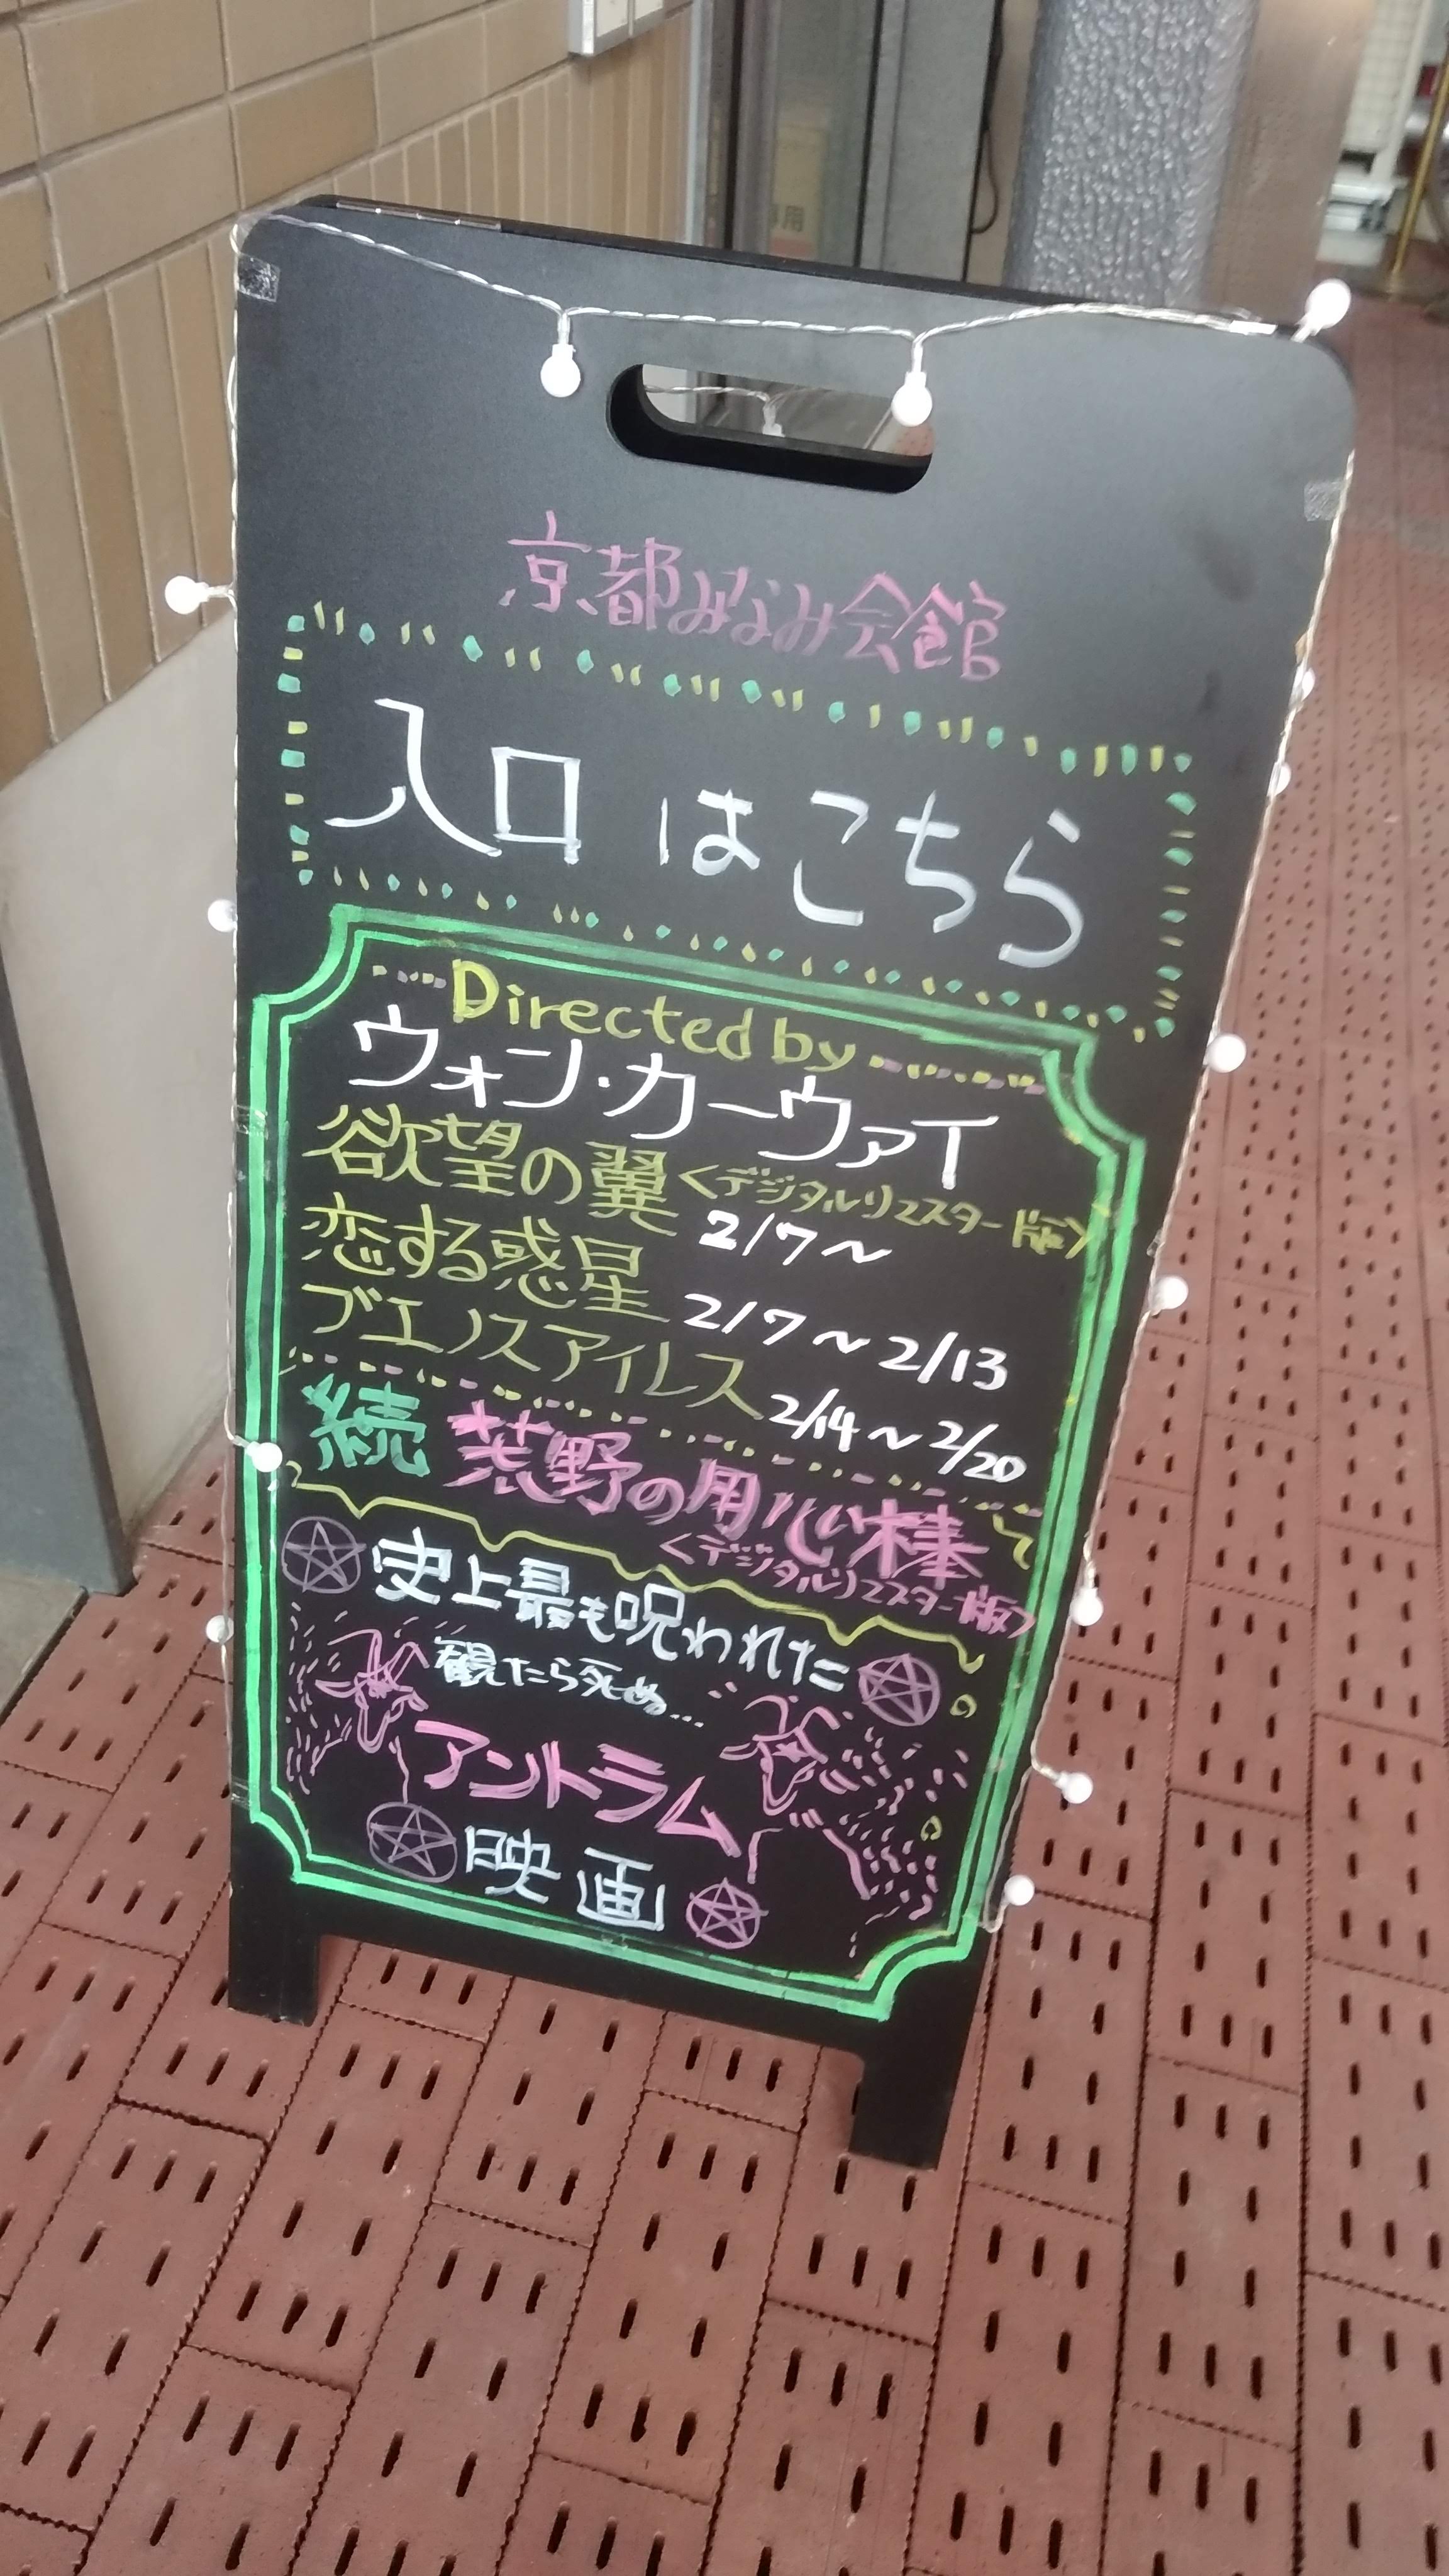 京都みなみ会館
入口はこちら
Directed by
ウォン・カーウァイ
欲望の翼<デジタルリマスター版>
2/7～
恋する惑星
2/7～2/13
ブエノスアイレス
2/14～2/20
続 荒野の用心棒
<デジタルリマスター版>
史上最も呪われた
観たら死ぬ...
アントラム
映画